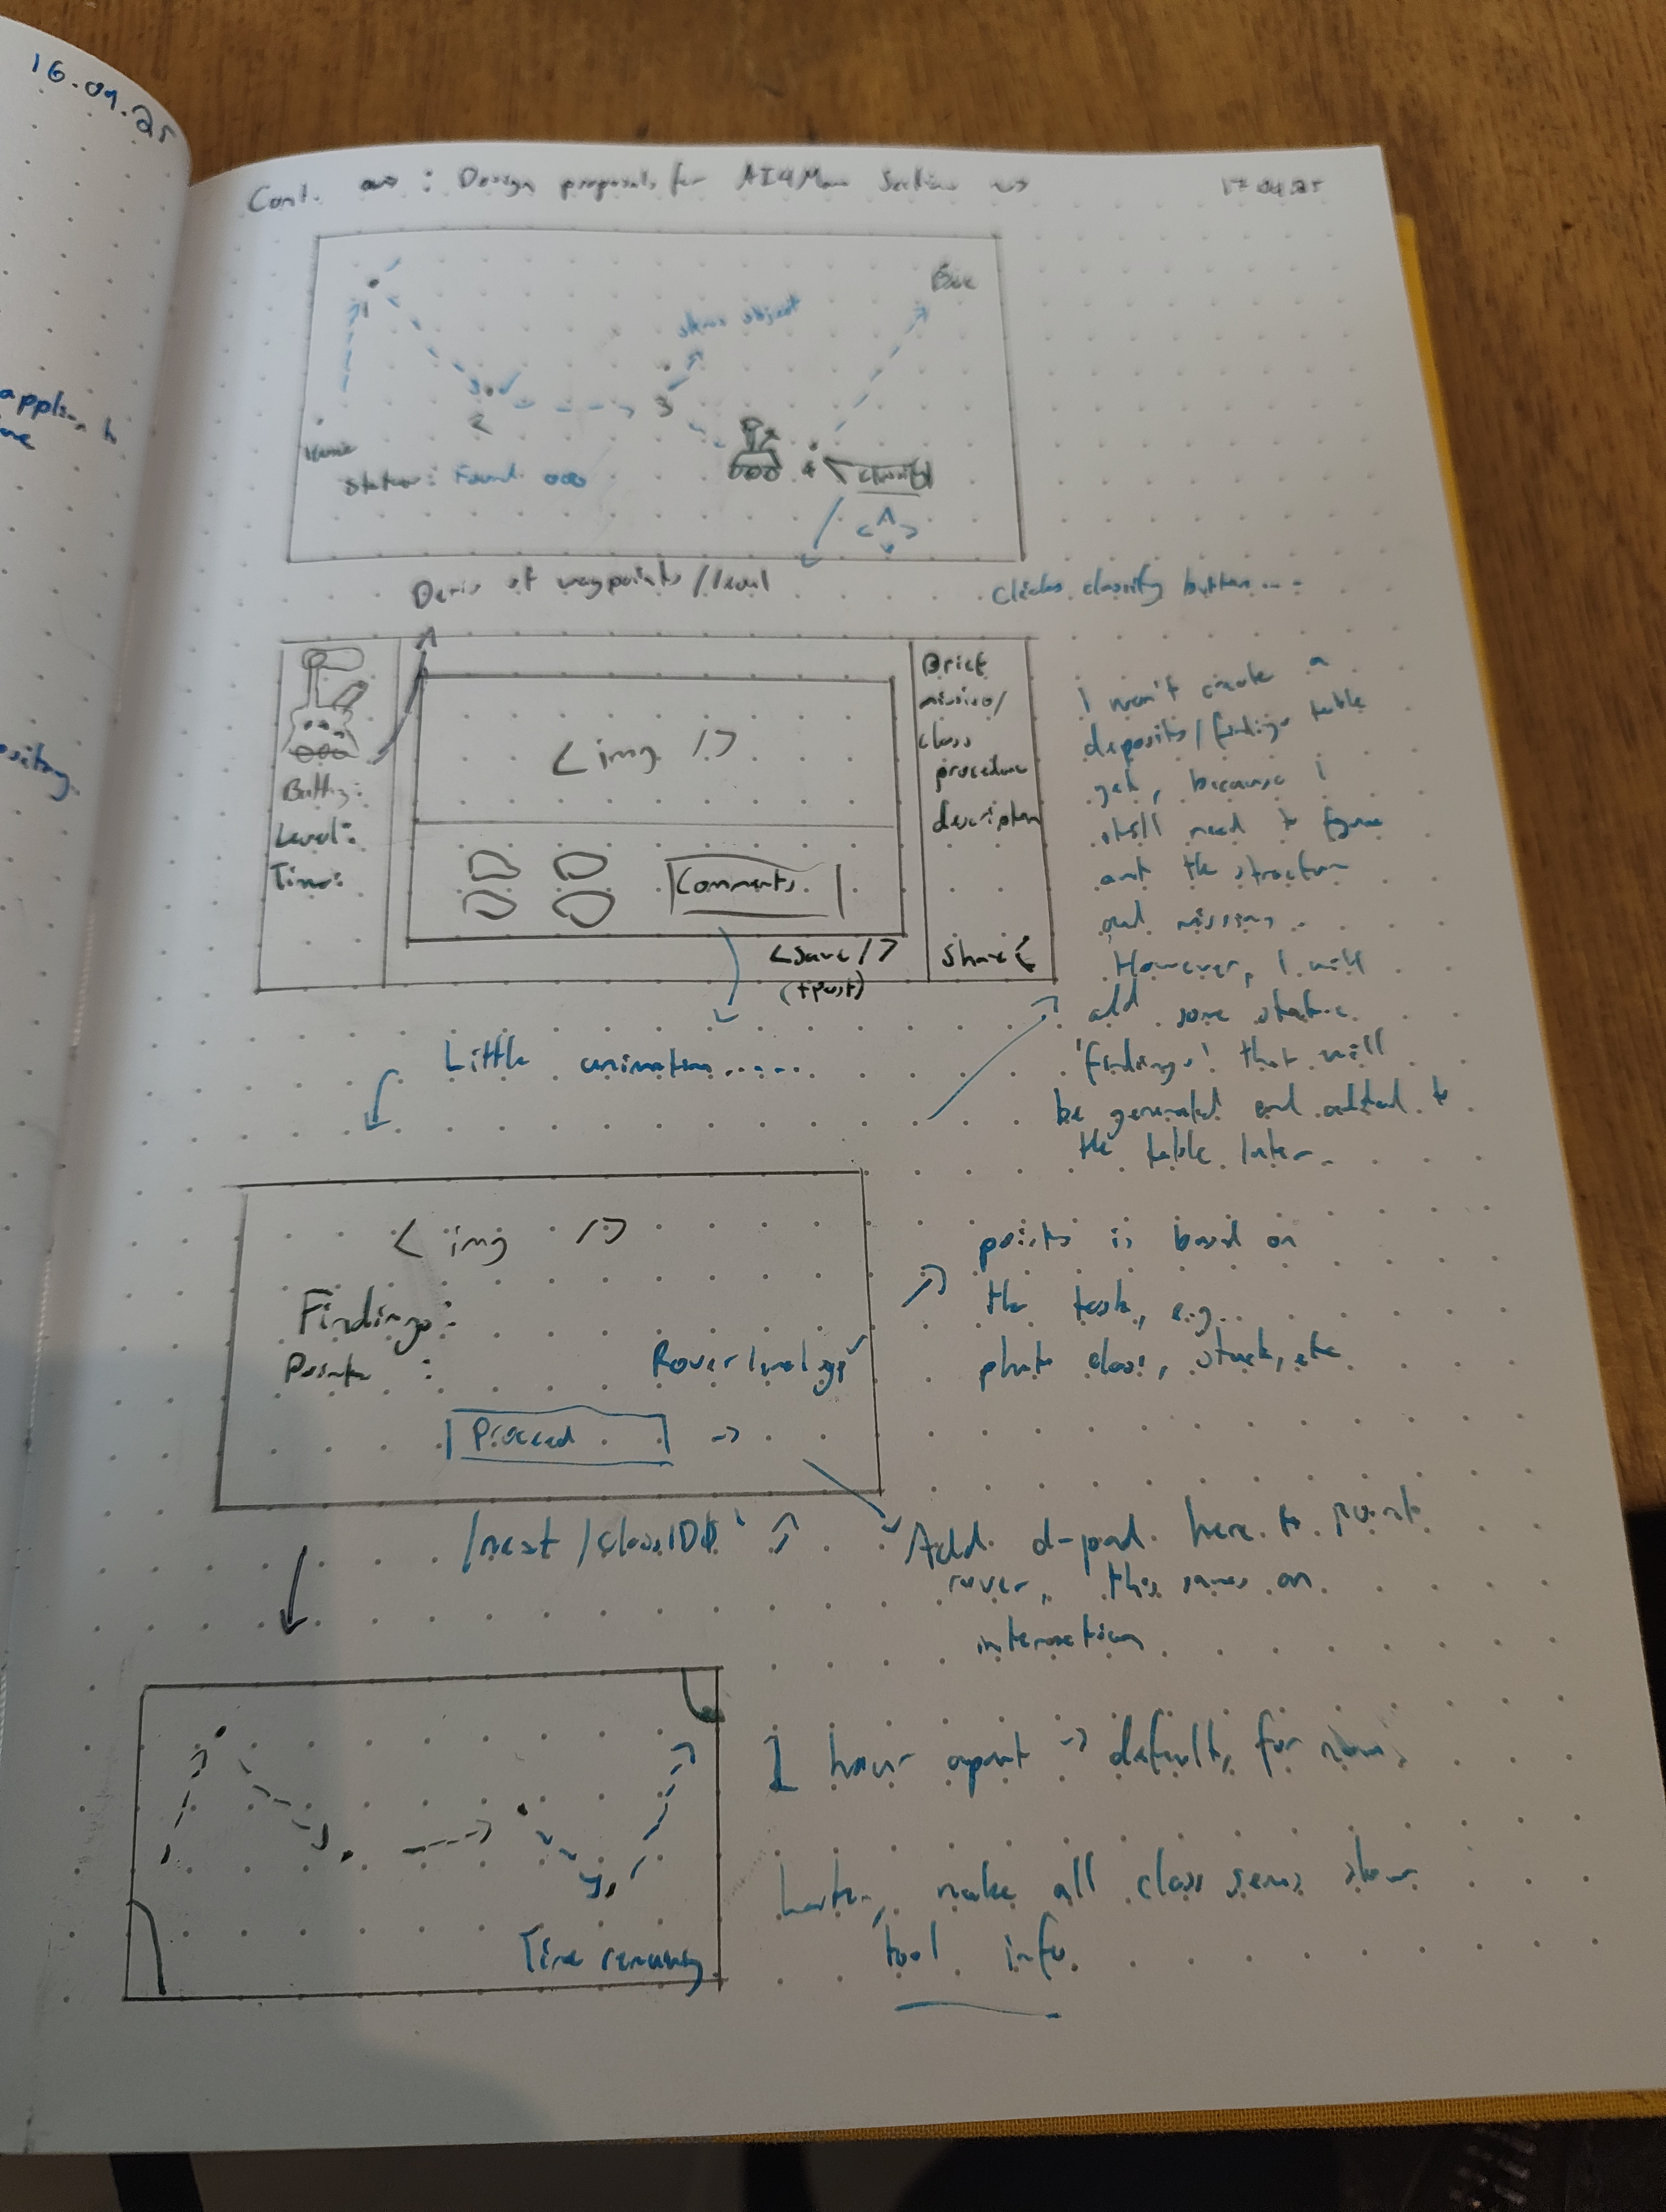 16.09.25
Cont. : Design proposals for AI4Mars Section
17.09.25
Base
1
object
2
3
4
Home
Status: Found ooo
Classify
of waypoints / level
Clicks classify button...
Brief
mission/
class
procedure
description
Share
< img />
Battery:
Level:
Time:
Comments
<Save />
(+Post)
I won't create a
deposits/findings table
yet, because i
still need to figure
out the structure
and missions.
However, I will
add some static
'findings' that will
be generated and added to
the table later.
Little animation.....
< img />
Findings:
Points :
Proceed ->
points is based on
the task, e.g.
photo class, stuck, etc
/next/
Add d-pad here to point
rover, this saves on
interaction
Time remaining
1 hour apart -> default, for now.
Later, make all class show
tool info.